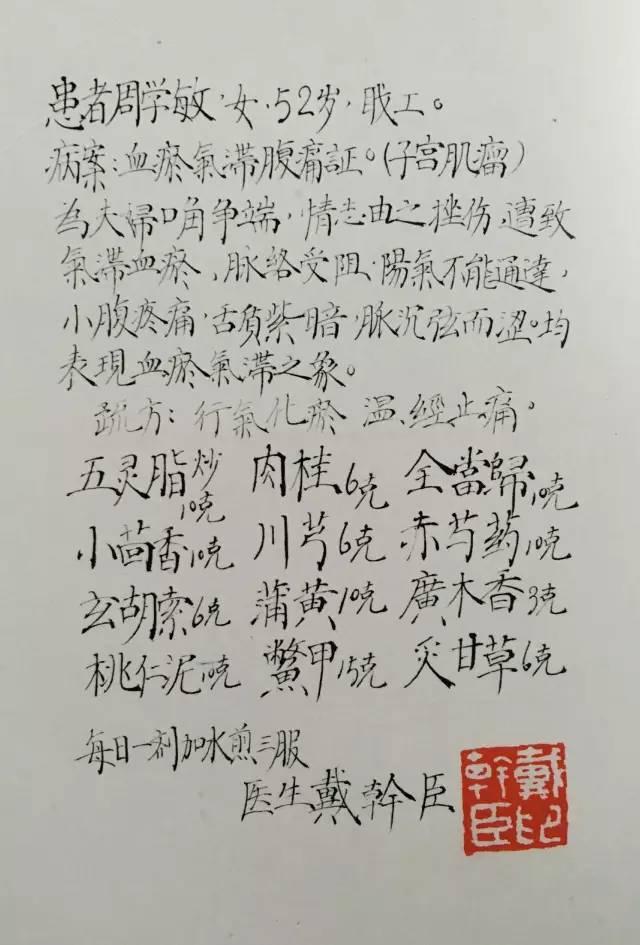 患者周学敏，女，52岁，职工。
病案：血瘀氣滞腹痛証。（子宫肌瘤）
為夫婦口角争端，情志由之挫伤，遭致
氣滞血瘀，脉络受阻，陽氣不能通達，
小腹疼痛，舌質紫暗，脉沉弦而涩。均
表現血瘀氣滞之象。
疏方：行氣化瘀 温經止痛。
五灵脂炒10克 肉桂6克 全當歸10克
小茴香10克 川芎6克 赤芍药10克
玄胡索6克 蒲黄10克 廣木香3克
桃仁泥10克 鱉甲15克 炙甘草6克
每日一剂加水煎三服
医生戴幹臣
戴印幹臣